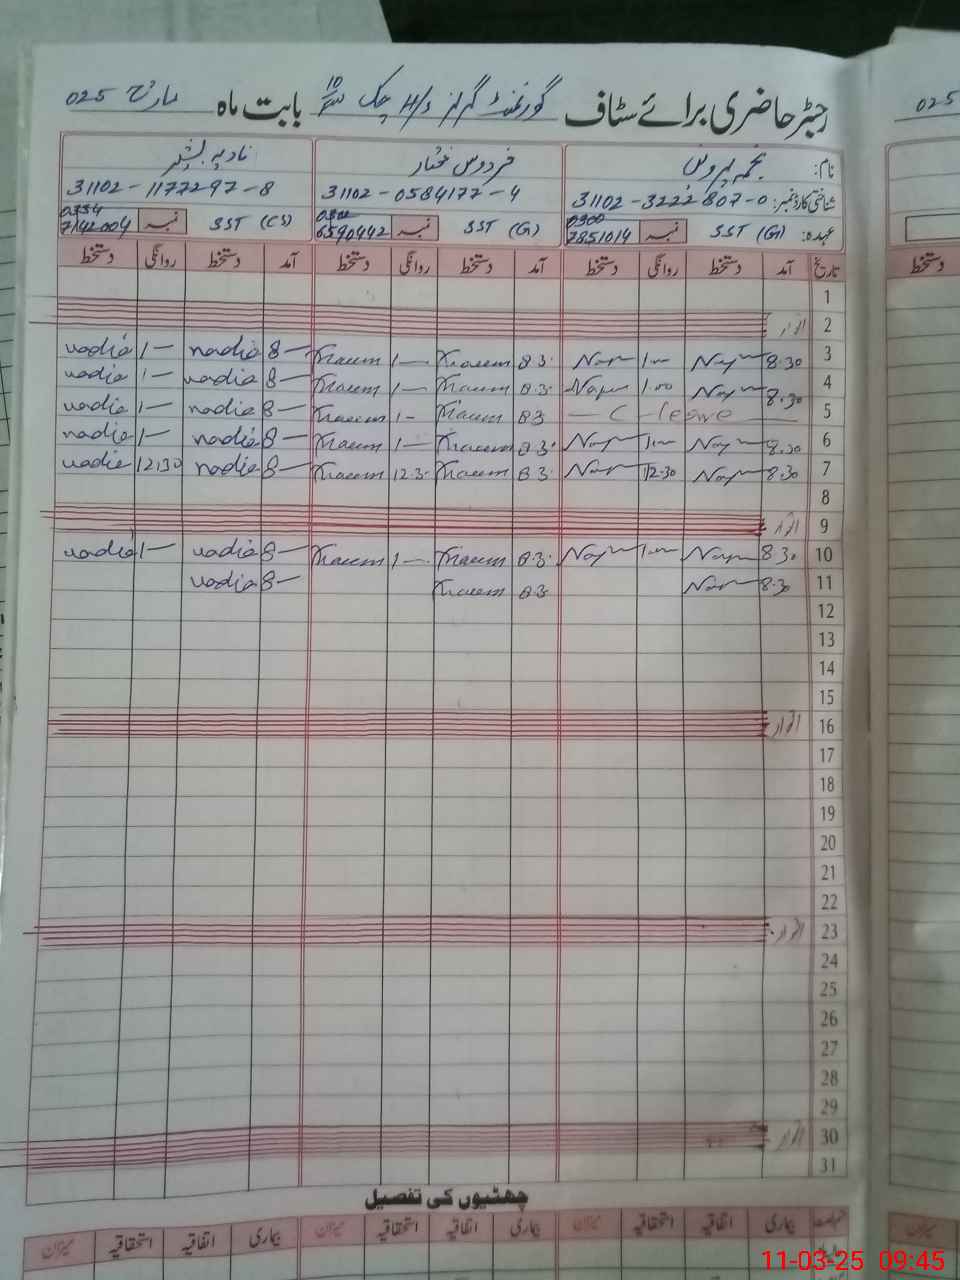 رجسٹر حاضری برائے سٹاف گورنمنٹ گرلز H/S چک بابت ماہ مارچ 025
نام: نجمہ پروین فردوس مختار نادیہ بشیر
شناختی کارڈ نمبر: 31102-3222807-0 31102-0584177-4 31102-1177297-8
عہدہ: SST (G) نمبر 0300 7851014 SST (G) نمبر 0302 6590442 SST (CS) نمبر 0334 7142004
تاریخ آمد دستخط روانگی دستخط آمد دستخط روانگی دستخط آمد دستخط روانگی دستخط
1
2 اتوار
3 8.30 1— 8.3 1— 8— nadia 1— nadia
4 8.30 1.00 8.3 1— 8— nadia 1— nadia
5 — C — leave — 8.3 1— 8— nadia 1— nadia
6 8.30 1— 8.3 1— 8— nadia 1— nadia
7 8.30 12.30 8.3 12.3 8— nadia 12.30 nadia
8
9 اتوار
10 8.30 1— 8.3 1— 8— nadia 1— nadia
11 8.30 8.3 8— nadia
12
13
14
15
16 اتوار
17
18
19
20
21
22
23 اتوار
24
25
26
27
28
29
30 اتوار
31
چھٹیوں کی تفصیل
بیماری اتفاقیہ استحقاقیہ میزان بیماری اتفاقیہ استحقاقیہ میزان بیماری اتفاقیہ استحقاقیہ میزان
025
دستخط
میزان
11-03-25 09:45